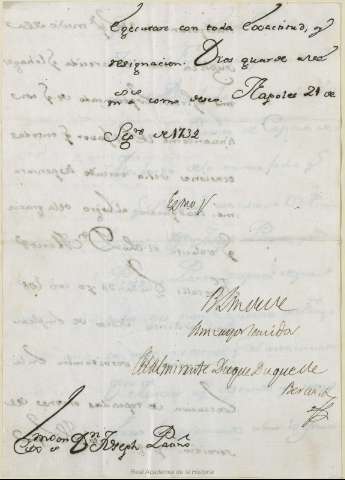 egecutare con toda exactitud, y
resignacion. Dios guarde a V.E.
m.s a.s como deseo. Napoles 21 de
Sep.re de 1732
Ex.mo S.r
B L M de V.E.
su mayor servidor
El Almirante Duque Duque de
Ex.mo S.r D.n Joseph Patiño
Real Academia de la Historia